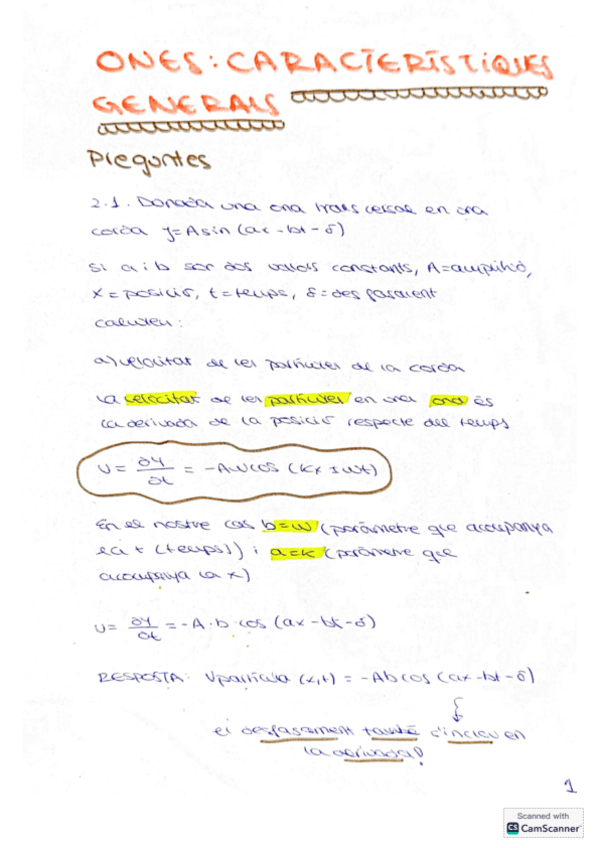 ONES: CARACTERÍSTIQUES
GENERALS
Preguntes
2.1. Donada una ona transversal en una
corda y=Asin(ax-bt-δ)
si a i b son dos valors constants, A=amplitud,
x=posició, t=temps, δ=desfasament
calculeu:
a) velocitat de les partícules de la corda
La velocitat de les partícules en una ona és
la derivada de la posició respecte del temps
v = ∂y/∂t = -Aωcos(kx ± ωt)
En el nostre cas b=ω (paràmetre que acompanya
la t (temps)) i a=k (paràmetre que
acompanya la x)
v = ∂y/∂t = -A·b·cos(ax-bt-δ)
RESPOSTA: Vpartícula (x,t) = -Abcos(ax-bt-δ)
el desfasament també s'inclou en
la derivada!
1
Scanned with
CS CamScanner